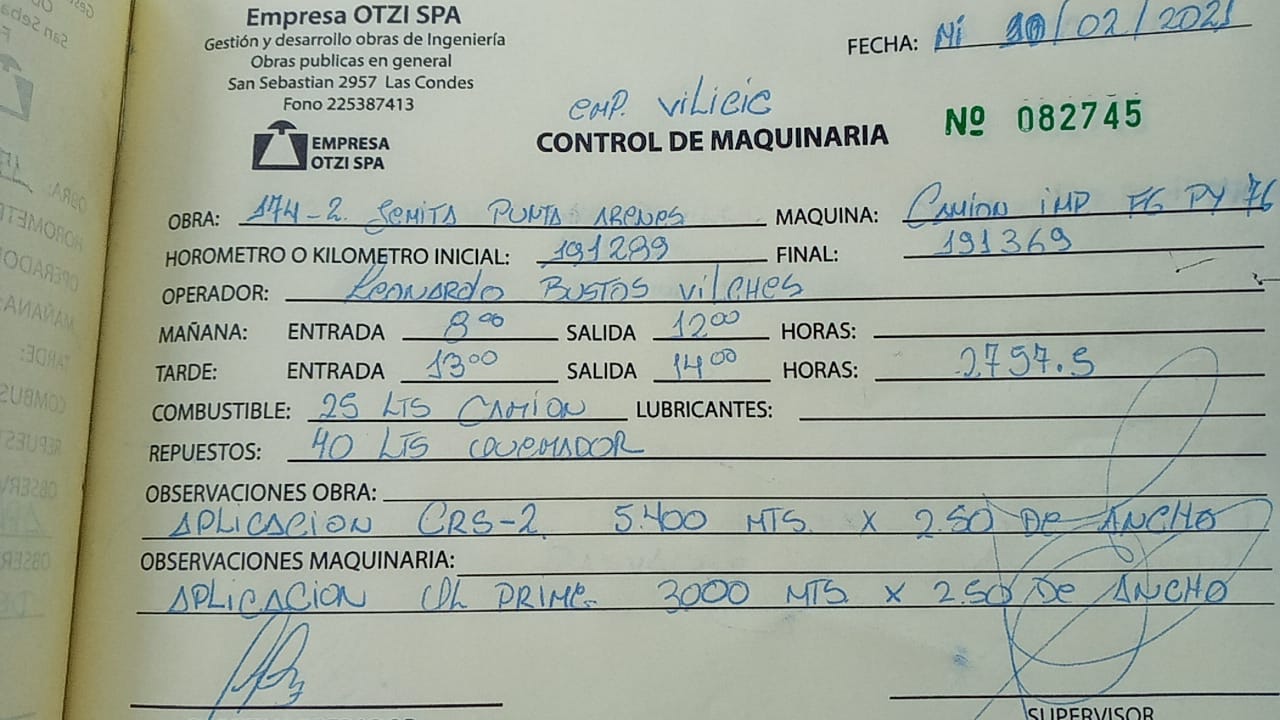 Empresa OTZI SPA
Gestión y desarrollo obras de Ingeniería
Obras publicas en general
San Sebastian 2957 Las Condes
Fono 225387413
EMPRESA
OTZI SPA
FECHA: Mi /02/2021
emp. Vilicic
CONTROL DE MAQUINARIA
Nº 082745
OBRA: 174-2 Semita Punta Arenas MAQUINA: Camion imp FG PY 76
HOROMETRO O KILOMETRO INICIAL: 191289 FINAL: 191369
OPERADOR: Leonardo Bustos Vilches
MAÑANA: ENTRADA 8:00 SALIDA 12:00 HORAS:
TARDE: ENTRADA 13:00 SALIDA 14:00 HORAS: 2797.5
COMBUSTIBLE: 25 LTS Camion LUBRICANTES:
REPUESTOS: 40 LTS
OBSERVACIONES OBRA:
APLICACION CRS-2 5.400 MTS. X 2.50 De ANCHO
OBSERVACIONES MAQUINARIA:
APLICACION PRIME 3000 MTS X 2.50 De ANCHO
SUPERVISOR